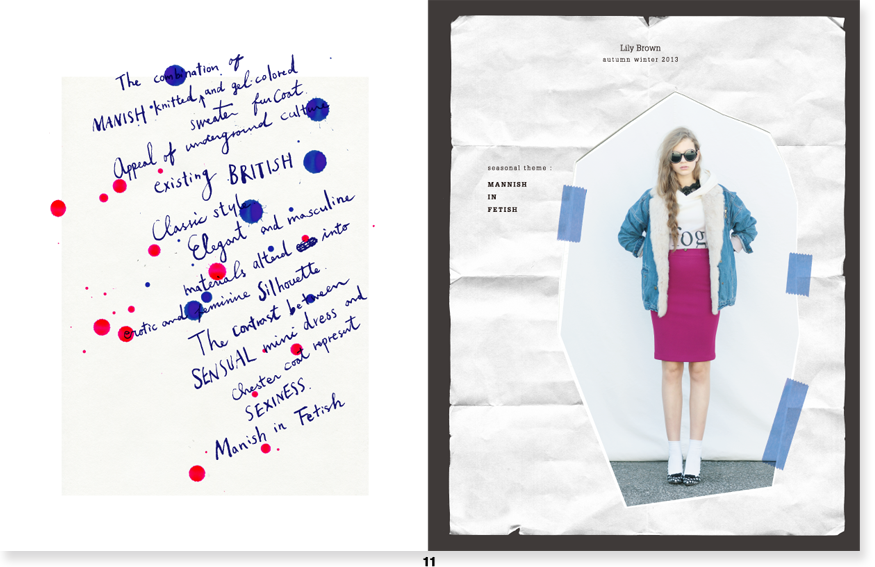 The combination of
MANISH knitted, and gel-colored
sweater fur Coat.
Appeal of underground culture
existing BRITISH
Classic style.
Elegant and masculine
materials altered into
erotic and feminine Silhouette.
The contrast between
SENSUAL mini dress and
chester coat represent
SEXINESS.
Manish in Fetish
Lily Brown
autumn winter 2013
seasonal theme :
MANNISH
IN
FETISH
og
11